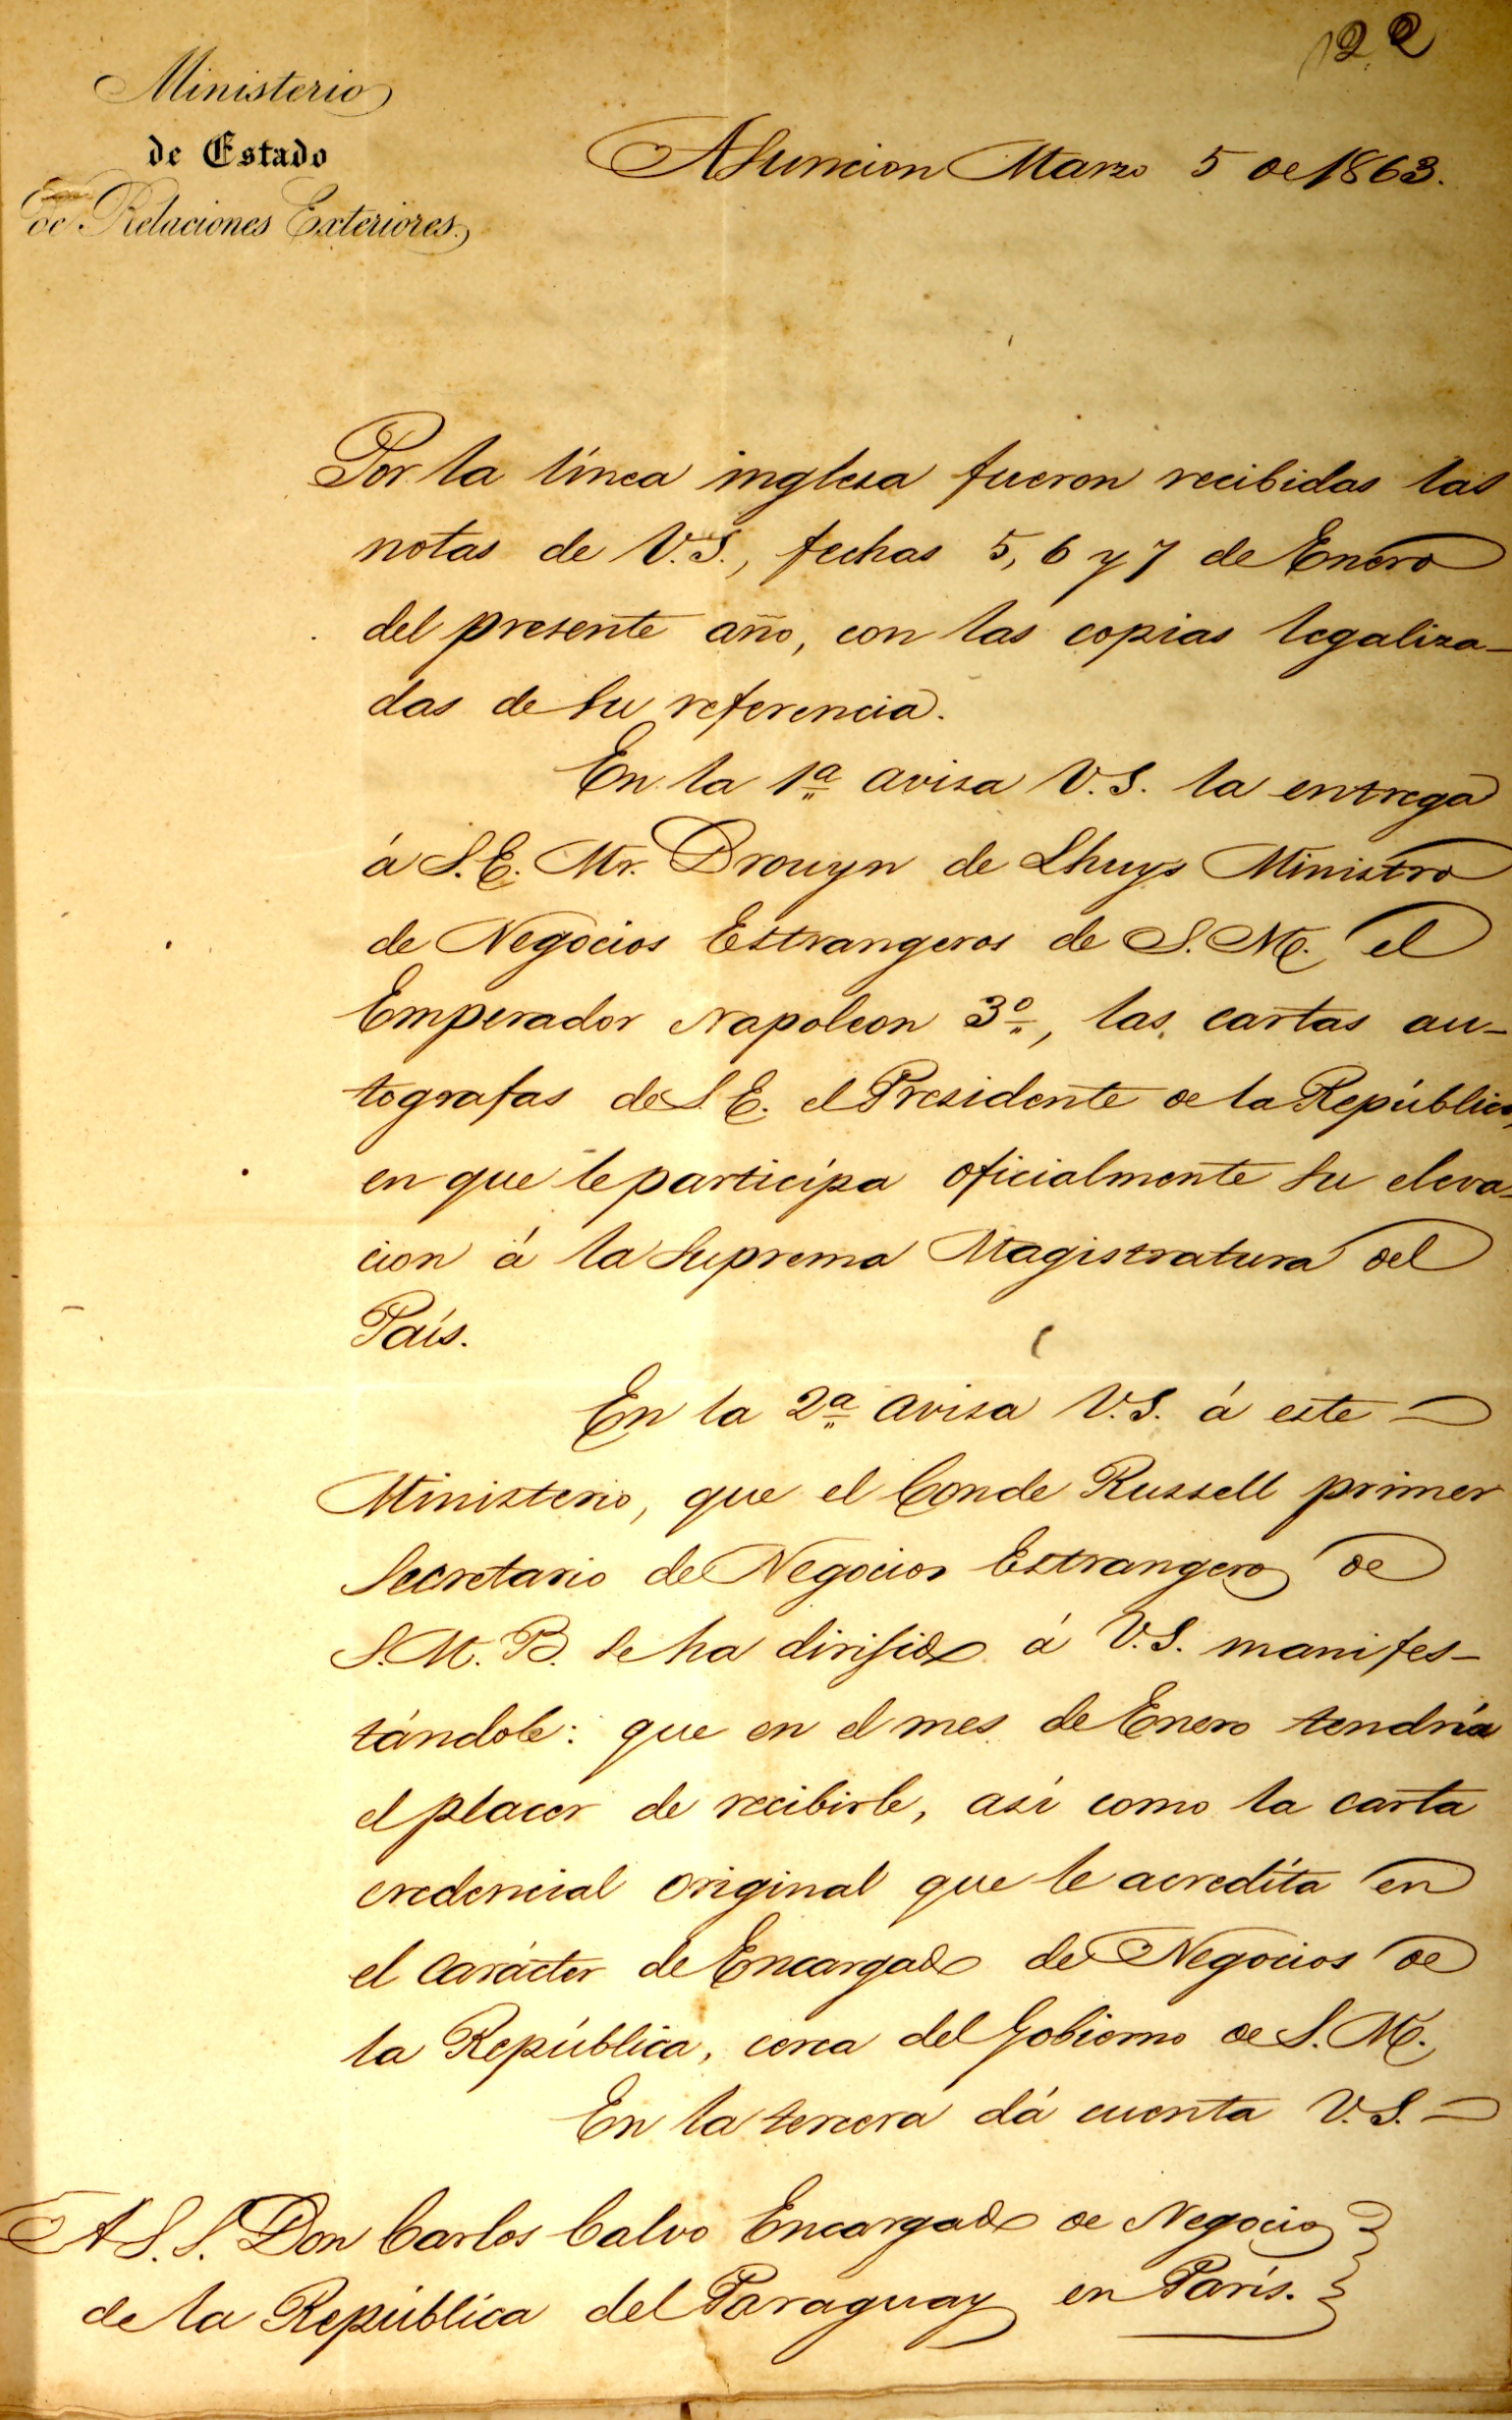 122
Ministerio
de Estado
de Relaciones Exteriores.
Asuncion Marzo 5 de 1863.
Por la línea inglesa fueron recibidas las
notas de V.S., fechas 5, 6 y 7 de Enero
del presente año, con las copias legaliza-
das de su referencia.
En la 1ª avisa V.S. la entrega
á S.E. Mr. Drouyn de Lhuys Ministro
de Negocios Estrangeros de S.M. el
Emperador Napoleon 3º, las cartas au-
tografas de S.E. el Presidente de la República,
en que le participa oficialmente su eleva-
cion á la Suprema Magistratura del
País.
En la 2ª avisa V.S. á este
Ministerio, que el Conde Russell primer
Secretario de Negocios Estrangeros de
S.M.B. se ha dirijido á V.S. manifes-
tándole: que en el mes de Enero tendría
el placer de recibirle, así como la carta
credencial original que le acredíta en
el carácter de Encargado de Negocios de
la República, cerca del Gobierno de S.M.
En la tercera dá cuenta V.S.
A S.S. Don Carlos Calvo Encargado de Negocios
de la República del Paraguay en París.